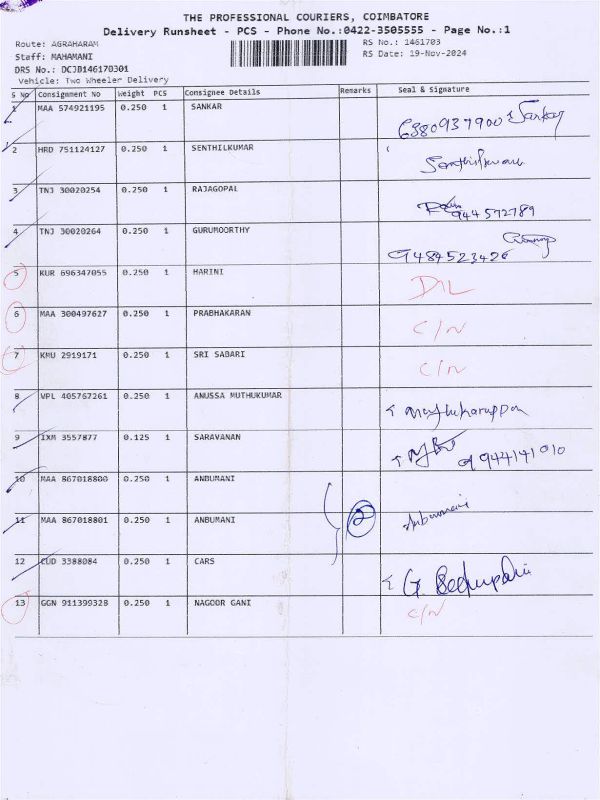 THE PROFESSIONAL COURIERS, COIMBATORE
Delivery Runsheet - PCS - Phone No.:0422-3505555 - Page No.:1
Route: AGRAHARAM
RS No.: 1461703
Staff: MAHAMANI
RS Date: 19-Nov-2024
DRS No.: DCJB146170301
Vehicle: Two Wheeler Delivery
S No Consignment No Weight PCS Consignee Details Remarks Seal & Signature
1 MAA 574921195 0.250 1 SANKAR
6380937900 Sankar
2 HRD 751124127 0.250 1 SENTHILKUMAR Senthilkumar
3 TNJ 30020254 0.250 1 RAJAGOPAL
944572789
4 TNJ 30020264 0.250 1 GURUMOORTHY
9484523426
5 KUR 696347055 0.250 1 HARINI D/L
6 MAA 300497627 0.250 1 PRABHAKARAN C/N
7 KMU 2919171 0.250 1 SRI SABARI C/N
8 VPL 405767261 0.250 1 ANUSSA MUTHUKUMAR
Muthukaruppan
9 IXM 3557877 0.125 1 SARAVANAN
9944141010
10 MAA 867018800 0.250 1 ANBUMANI
11 MAA 867018801 0.250 1 ANBUMANI 2 Anbumani
12 CUD 3388084 0.250 1 CARS
G.
13 GGN 911399328 0.250 1 NAGOOR GANI C/N